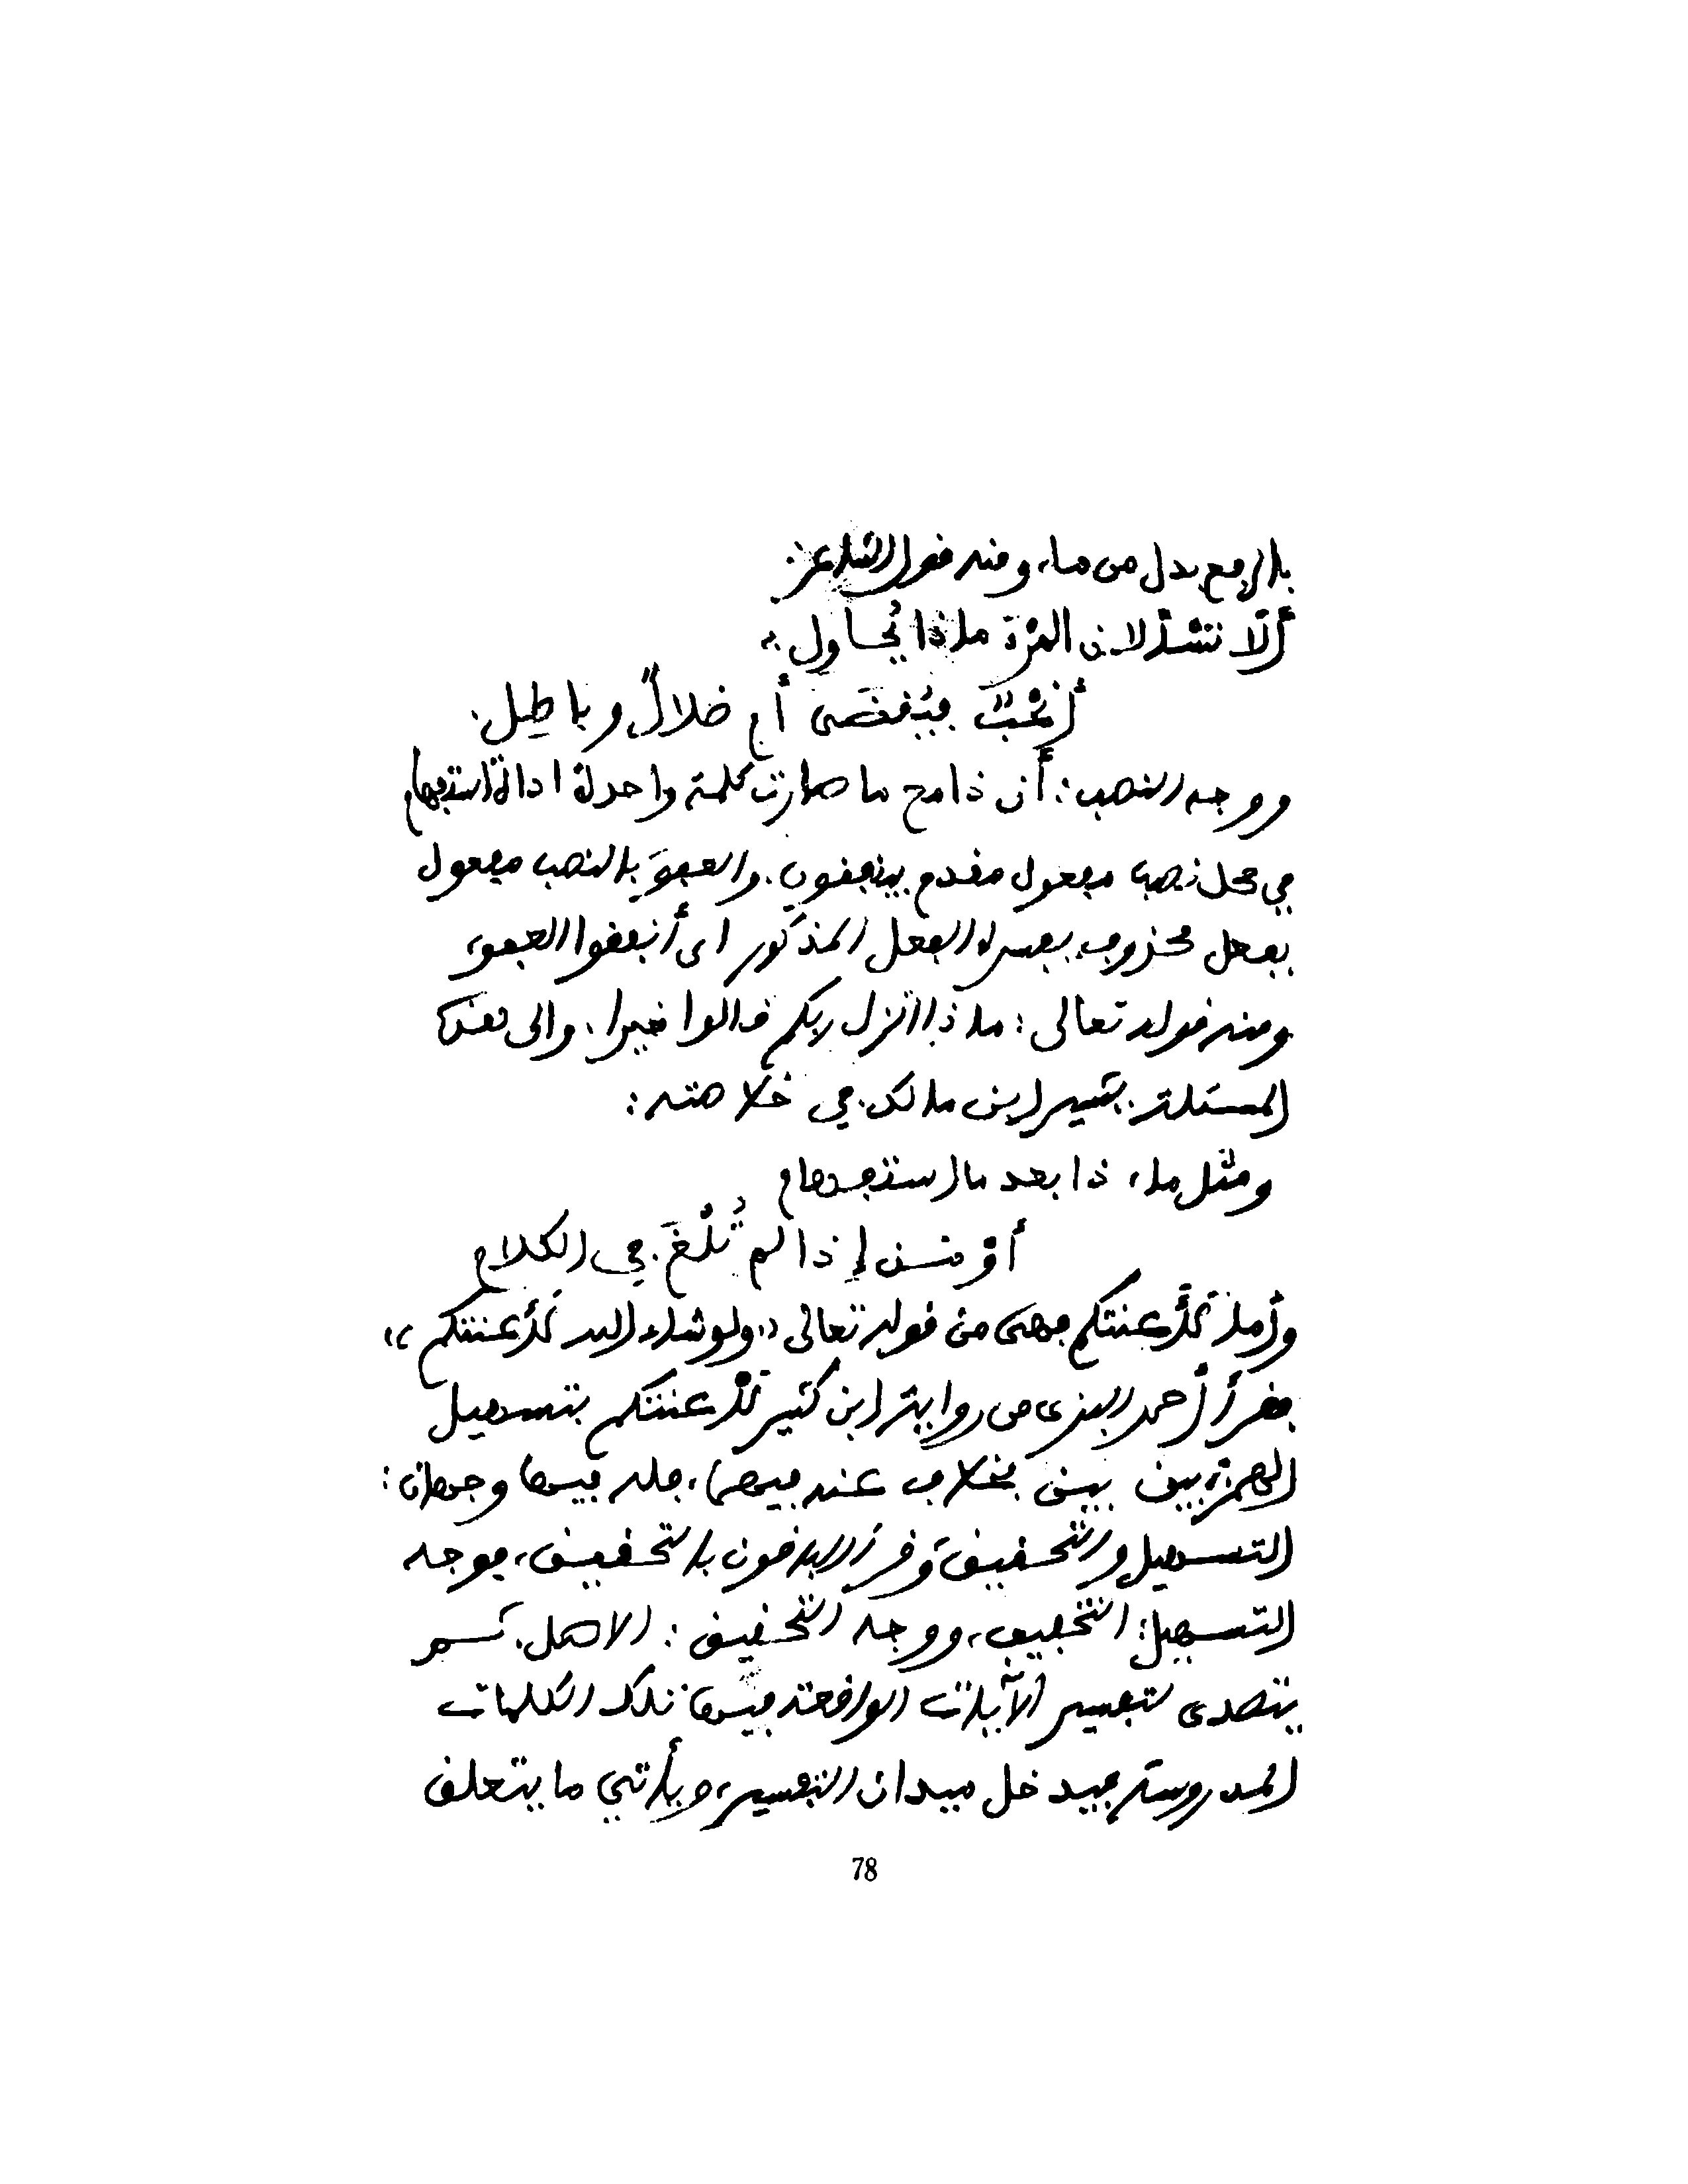 بالرفع بدل من ما، ومنه قول الشاعر:
ألا تسألان المرء ماذا يحاول؟
أنحبٌ فيُقضَى أم ضلالٌ وباطِل.
ووجه النصب: أن ذا مع ما صارت كلمة واحدة أداة استفهام
في محل نصب مفعول مقدم بينفقون. والعفوَ بالنصب مفعول
بفعل محذوف يفسره الفعل المذكور اى أنفقوا العفو،
ومنه قوله تعالى: ماذا أنزل ربكم قالوا خيرا، والى هذه
المسئلة يشير ابن مالك في خلاصته:
ومثل ما، ذا بعد ما استفهام
أوْ مَنْ إذا لم تُلْغَ في الكلام
وأما لَأَعنتكم فهى من قوله تعالى «ولو شاء الله لَأَعنتكم»،
فقرأ أحمد البزى من رواية ابن كثير لأعنتكم بتسهيل
الهمزة بين بين بخلاف عنه فيها، فله فيها وجهان:
التسهيل والتحقيق، وقرأ الباقون بالتحقيق، فوجه
التسهيل: التخفيف، ووجه التحقيق: الاصل. ثم
يتصدى لتفسير الآيات الواقعة فيها تلك الكلمات
المدروسة فيدخل ميدان التفسير، ويأتي ما يتعلق
78